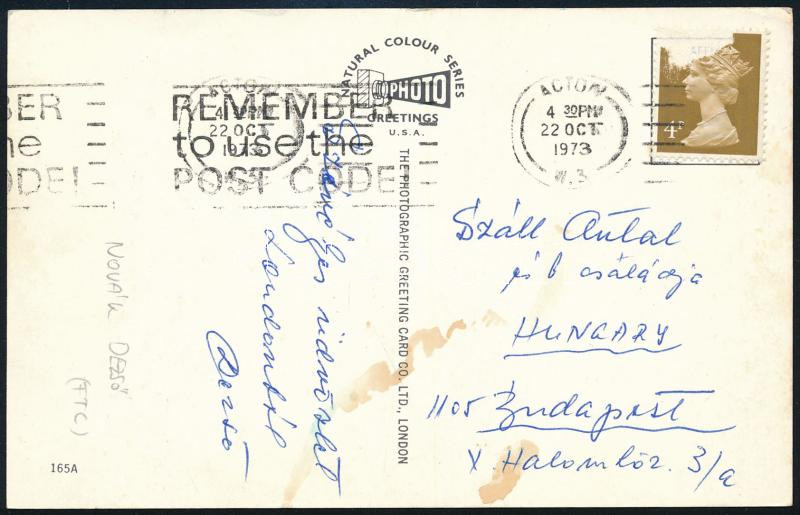 BER
he
ODE!
REMEMBER
to use the
POST CODE!
ACTON
4 30PM
22 OCT
1973
NATURAL COLOUR SERIES
PHOTO
GREETINGS
U.S.A.
ACTON
4 30PM
22 OCT
1973
W.3
4P
THE PHOTOGRAPHIC GREETING CARD CO. LTD., LONDON
üdvözlet
Londonból
Dezső
NOVÁK DEZSŐ
(FTC)
165A
Száll Antal
és b családja
HUNGARY
1105 Budapest
X. Halom köz. 3/a